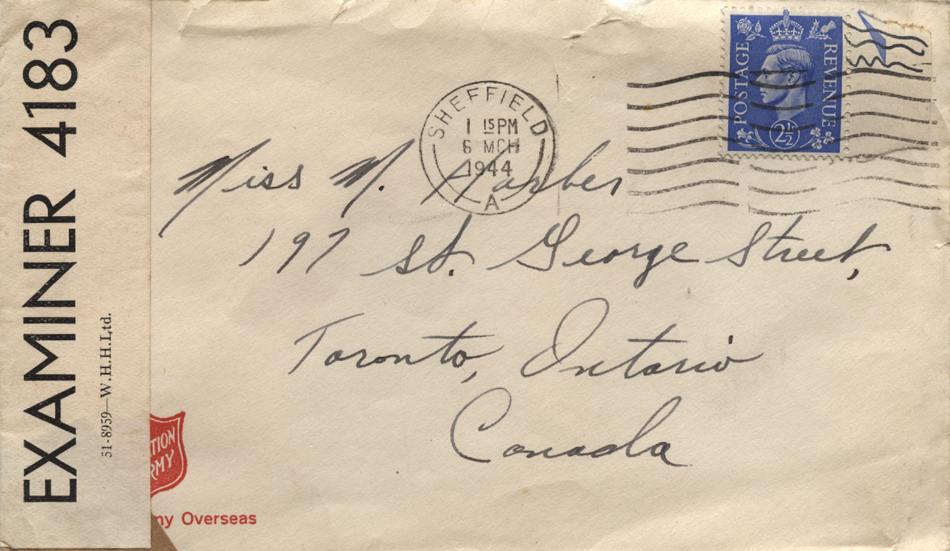 EXAMINER 4183
51-8959—W.H.H.Ltd.
SHEFFIELD
1 15 PM
6 MCH
1944
A
POSTAGE
REVENUE
2½
Miss M.
197 St. George Street,
Toronto, Ontario
Canada
TION
RMY
my Overseas